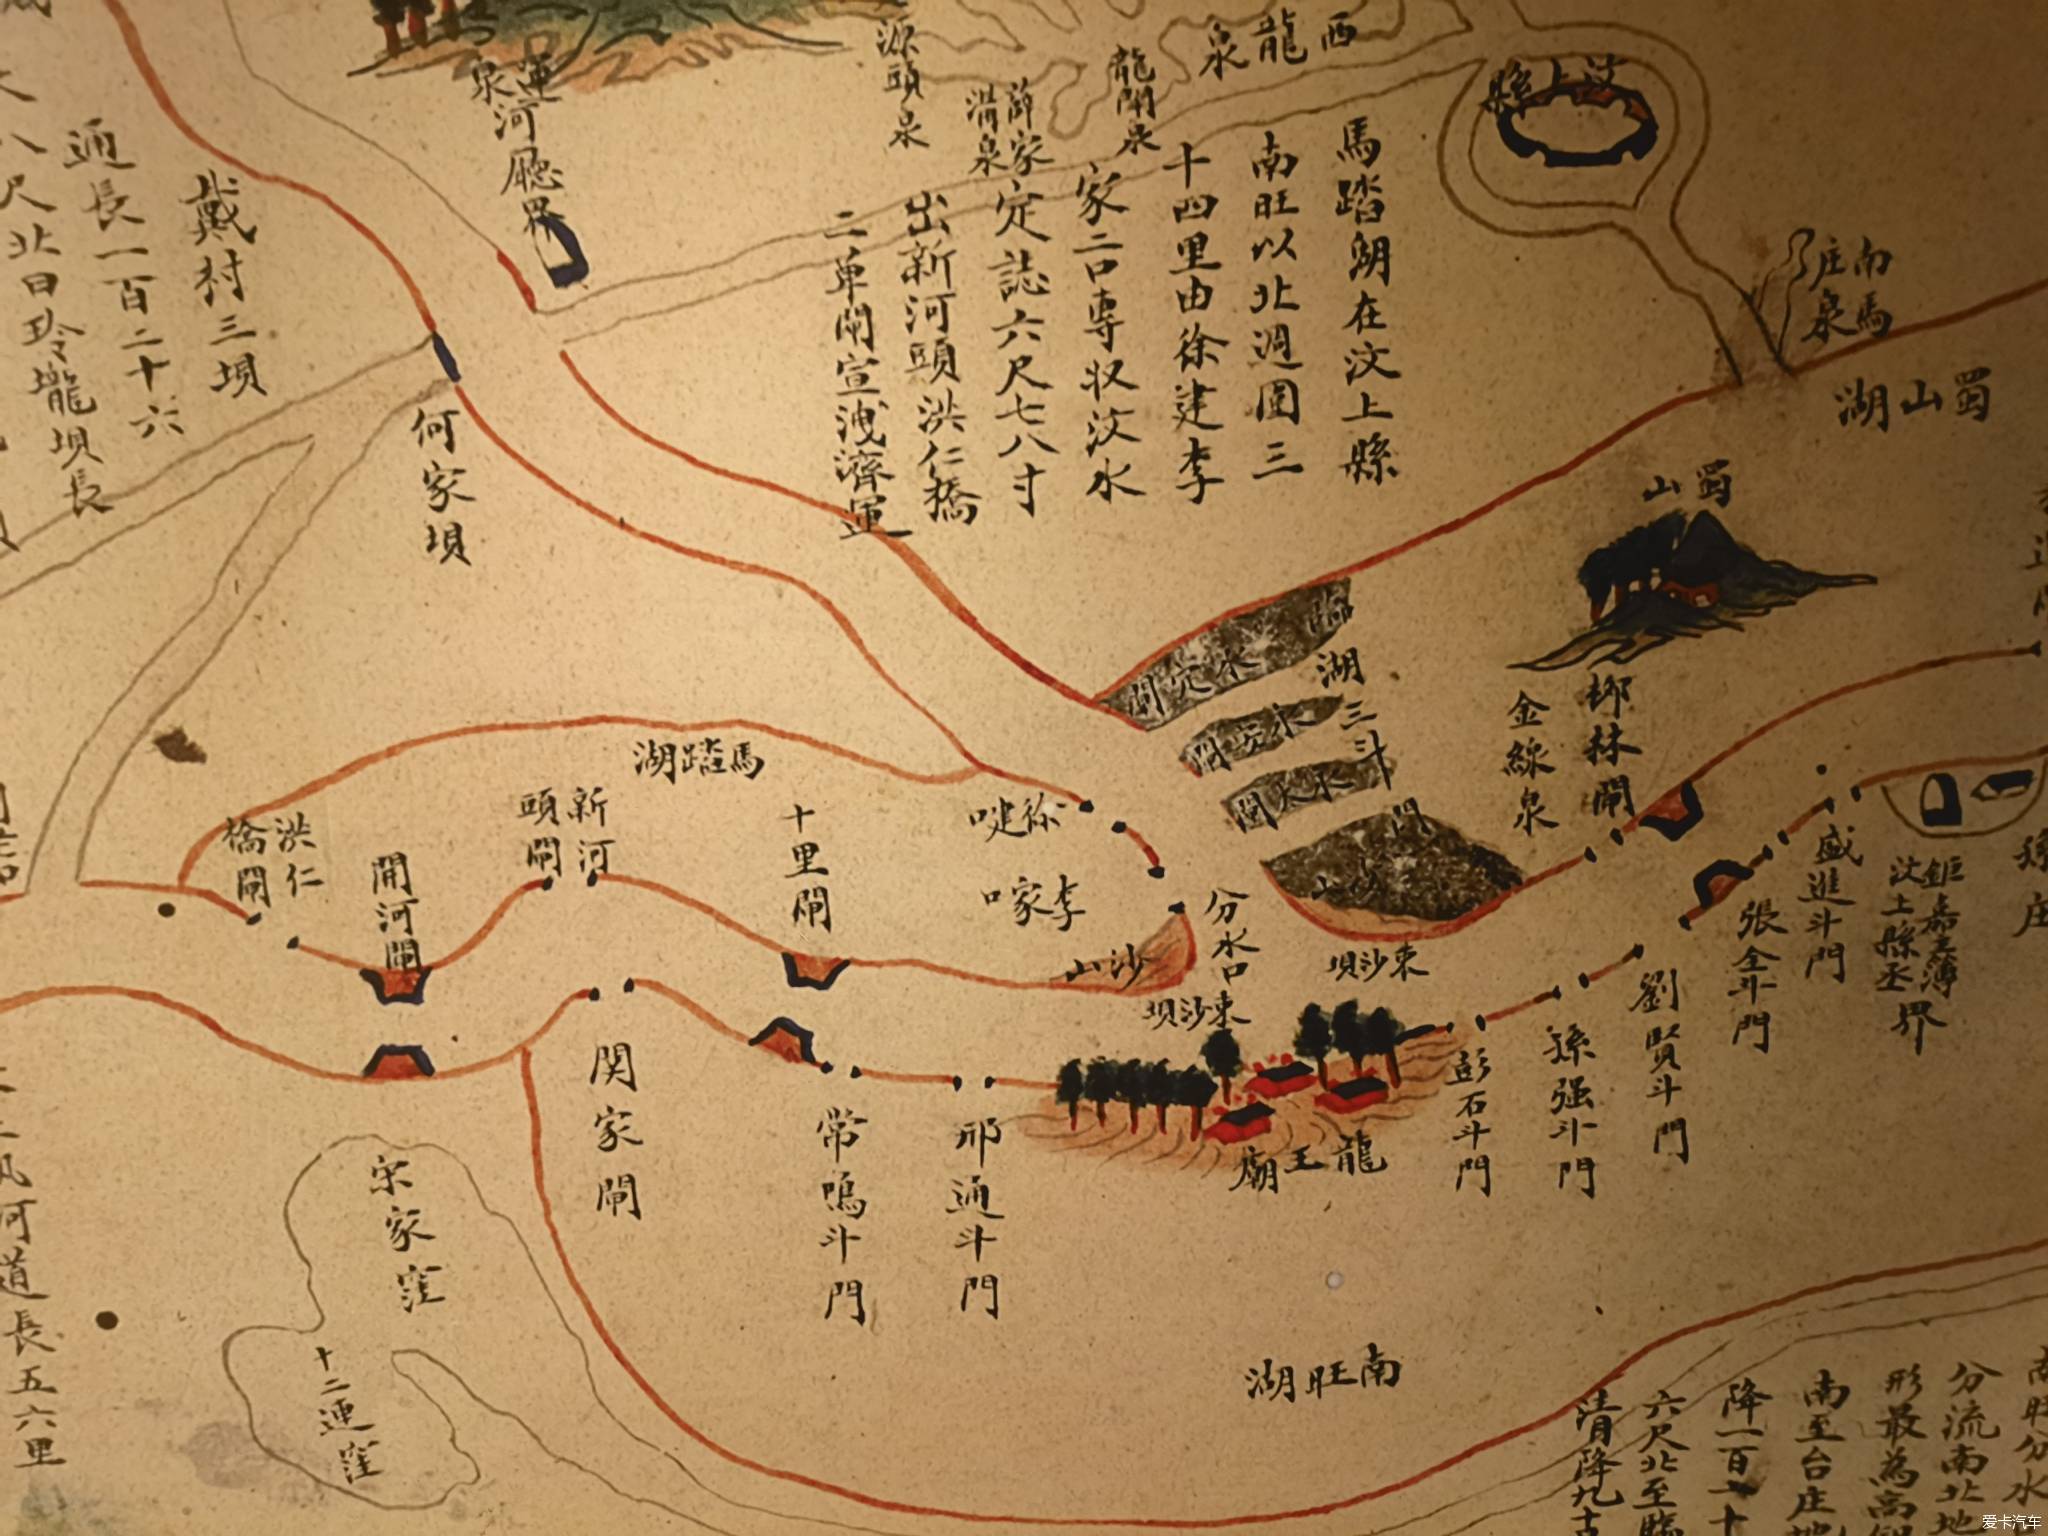 西龍泉
汶上縣
源頭泉
龍鬧泉
薛家溝泉
運河廳界
泉
南馬庄泉
馬踏湖在汶上縣
南旺以北週圍三
十四里由徐建李
家二口專収汶水
定誌六尺七八寸
出新河頭洪仁橋
二單閘宣洩濟運
戴村三坝
通長一百二十六
八尺北曰玲瓏坝長
何家坝
蜀山湖
蜀山
臨湖三斗門
永定閘
永安閘
永太閘
沙山
柳林閘
金線泉
馬踏湖
徐建口
李家口
十里閘
新河頭閘
洪仁橋閘
開河閘
分水口
沙山
束沙坝
束沙坝
盛進斗門
張全斗門
劉賢斗門
孫强斗門
彭石斗門
鉅嘉主薄
汶上縣丞
界
龍王廟
邢通斗門
常鳴斗門
関家閘
宋家窪
十二連窪
南旺湖
河道長五六里
南旺分水
分流南北地
形最為高
南至台庄地
降一百一十
六尺北至臨
清降九十
爱卡汽车